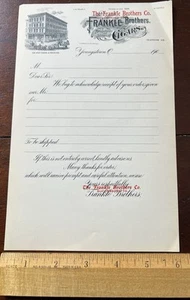 The Frankle Brothers Co.
FRANKLE Brothers.
CIGARS
Youngstown, O. 190
M
Dear Sir:
We beg to acknowledge receipt of your order given
our Mr.
for
To be shipped
If this is not entirely correct, kindly advise us.
Many thanks for order,
which will receive prompt and careful attention, we are
Yours respectfully,
The Frankle Brothers Co.
Frankle Brothers.
1 2 3 4 5 6